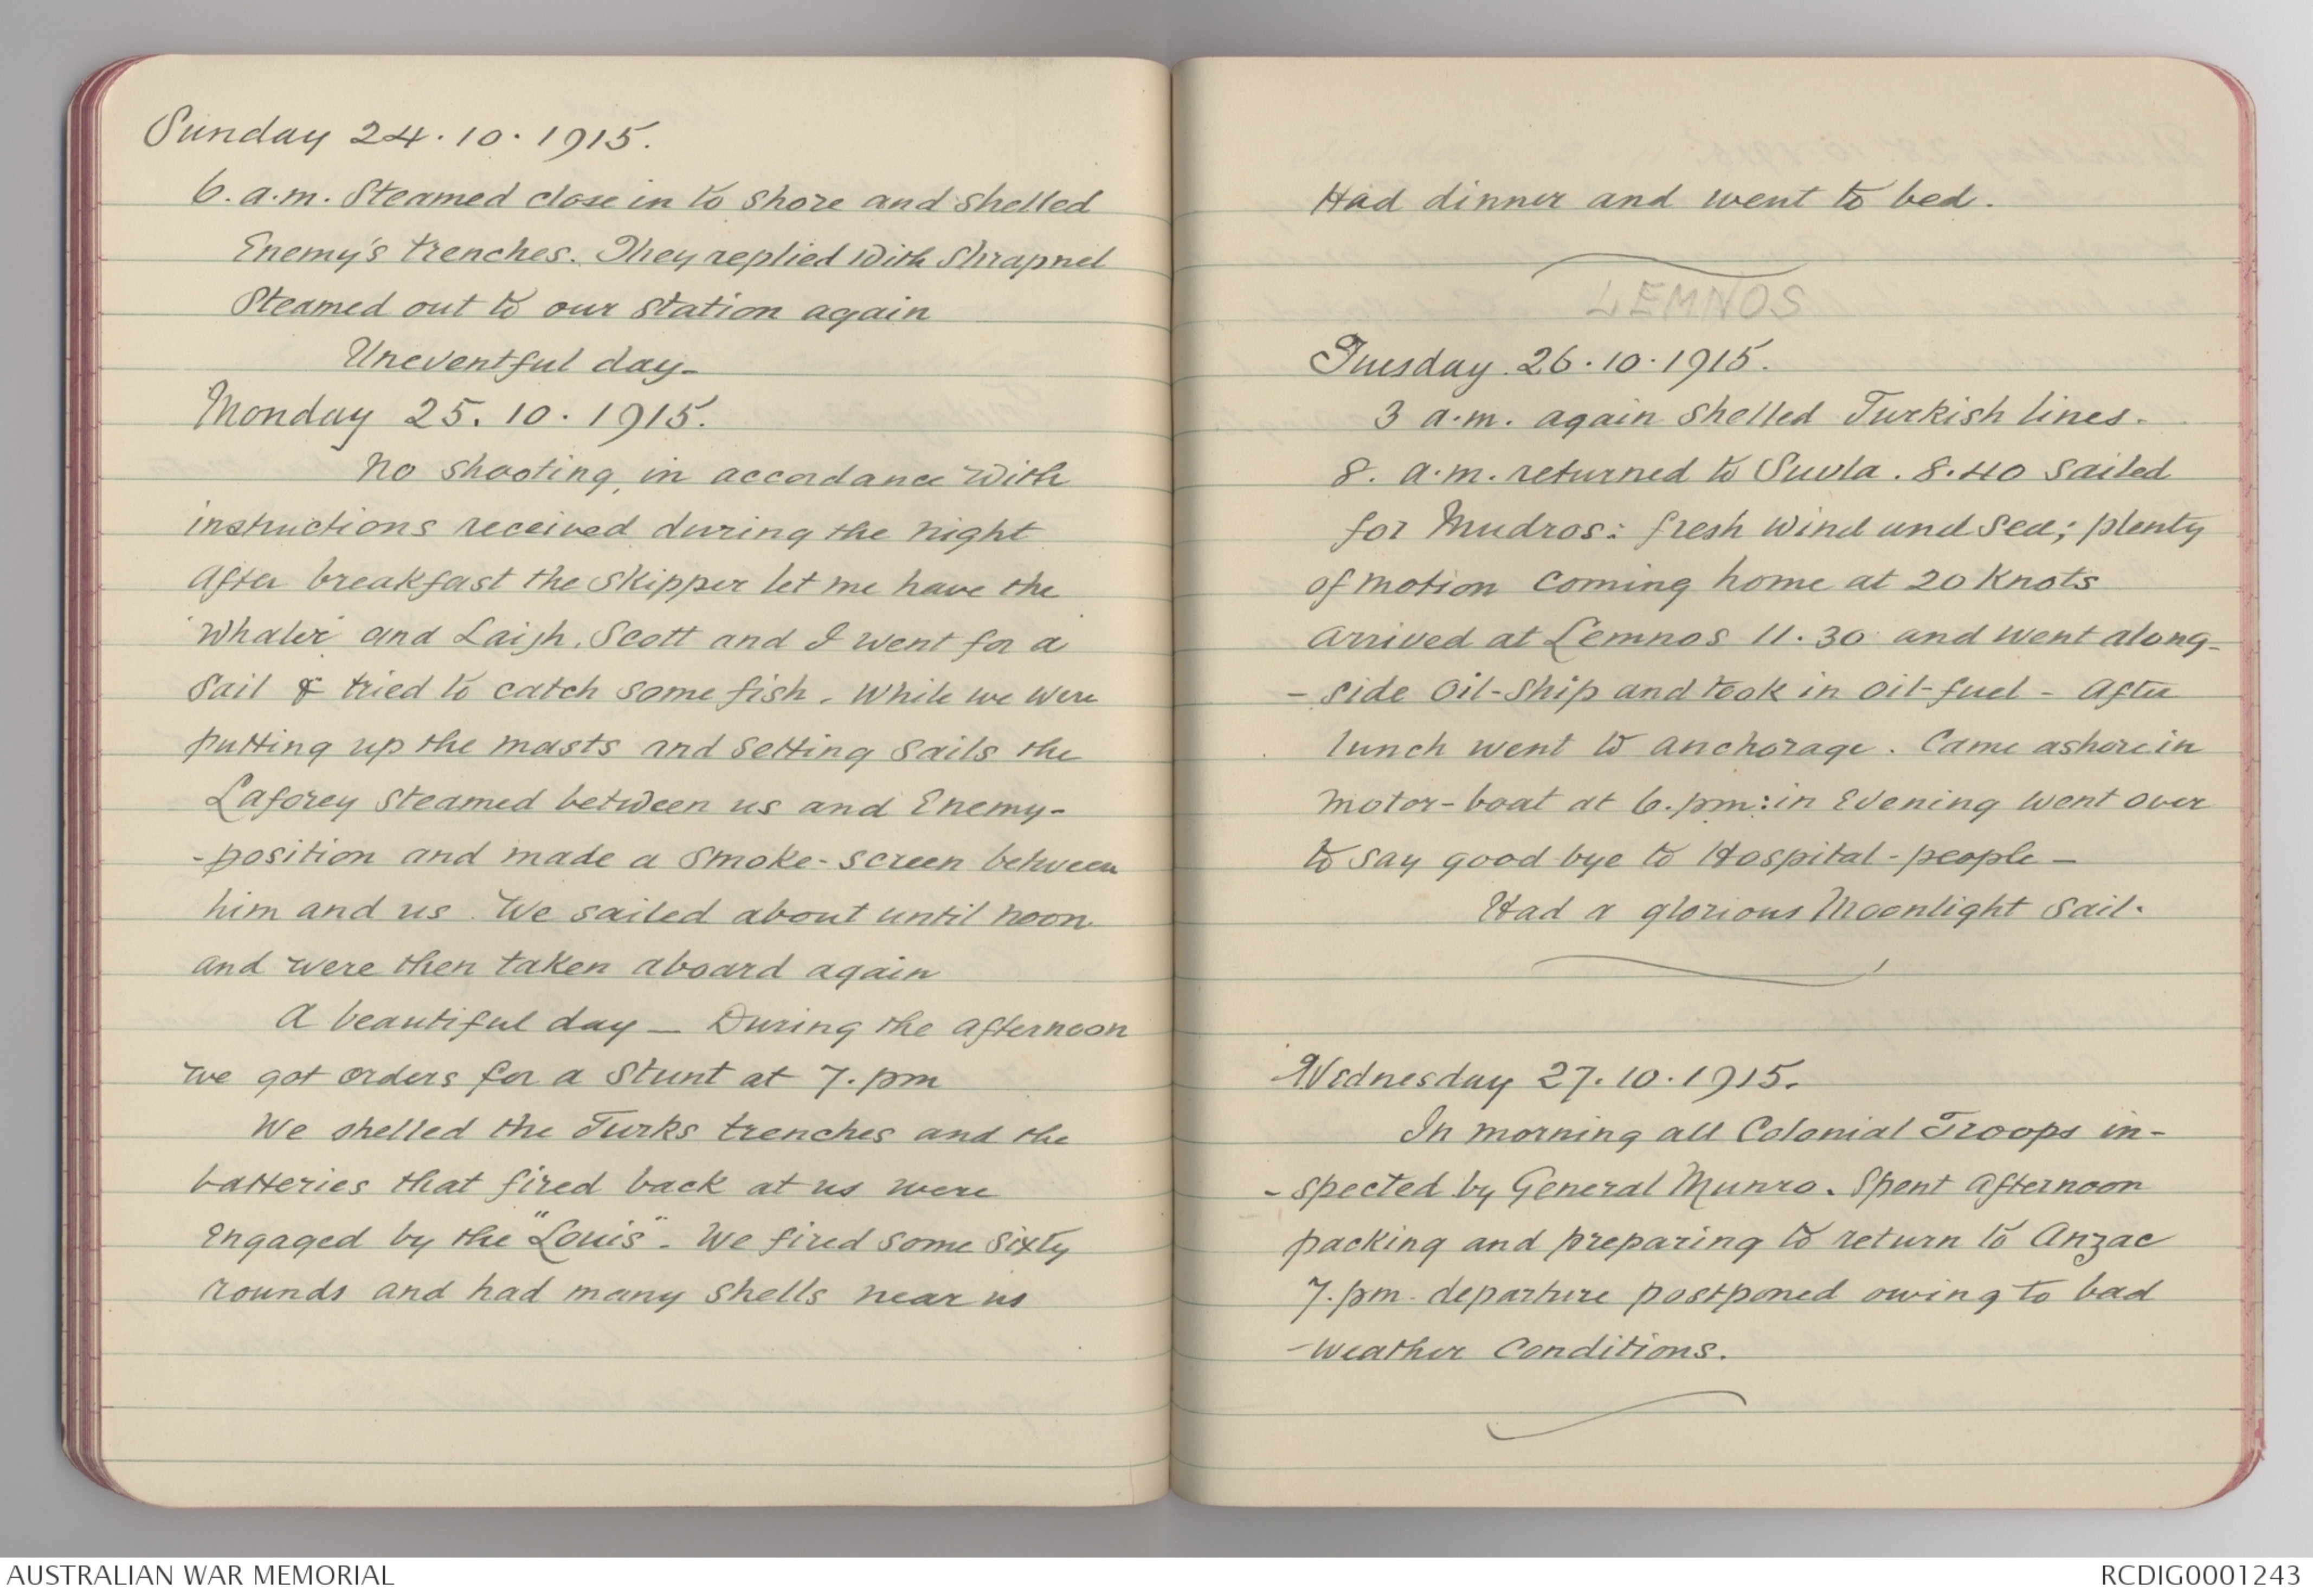 Sunday 24.10.1915.
6. a.m. Steamed close in to shore and shelled
Enemy's trenches. They replied with Shrapnel
Steamed out to our station again
Uneventful day-
Monday 25.10.1915.
No shooting, in accordance with
instructions received during the night
After breakfast the Skipper let me have the
'Whaler' and Laigh, Scott and I went for a
sail & tried to catch some fish. While we were
putting up the masts and setting sails the
Laforey steamed between us and Enemy-
-position and made a smoke-screen between
him and us. We sailed about until noon
and were then taken aboard again
A beautiful day — During the afternoon
we got orders for a Stunt at 7.pm
We shelled the Turks trenches and the
batteries that fired back at us were
engaged by the "Louis". We fired some sixty
rounds and had many shells near us
Had dinner and went to bed.
LEMNOS
Tuesday 26.10.1915.
3 a.m. again shelled Turkish lines.
8. a.m. returned to Suvla. 8.40 sailed
for Mudros: fresh wind and sea; plenty
of motion coming home at 20 Knots
Arrived at Lemnos 11.30 and went along-
- side Oil-Ship and took in oil-fuel - After
lunch went to anchorage. Came ashore in
motor-boat at 6.pm: in Evening went over
to say good-bye to Hospital-people —
Had a glorious Moonlight Sail.
Wednesday 27.10.1915.
In morning all Colonial Troops in-
- spected by General Munro. Spent afternoon
packing and preparing to return to Anzac
7.pm. departure postponed owing to bad
-weather conditions.
AUSTRALIAN WAR MEMORIAL
RCDIG0001243